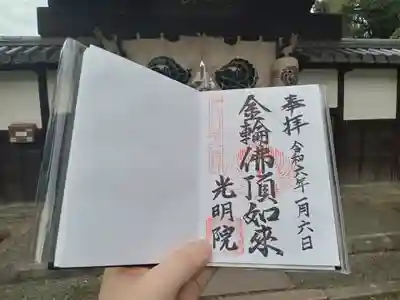 奉拝
令和六年一月六日
金輪佛頂如來
光明院